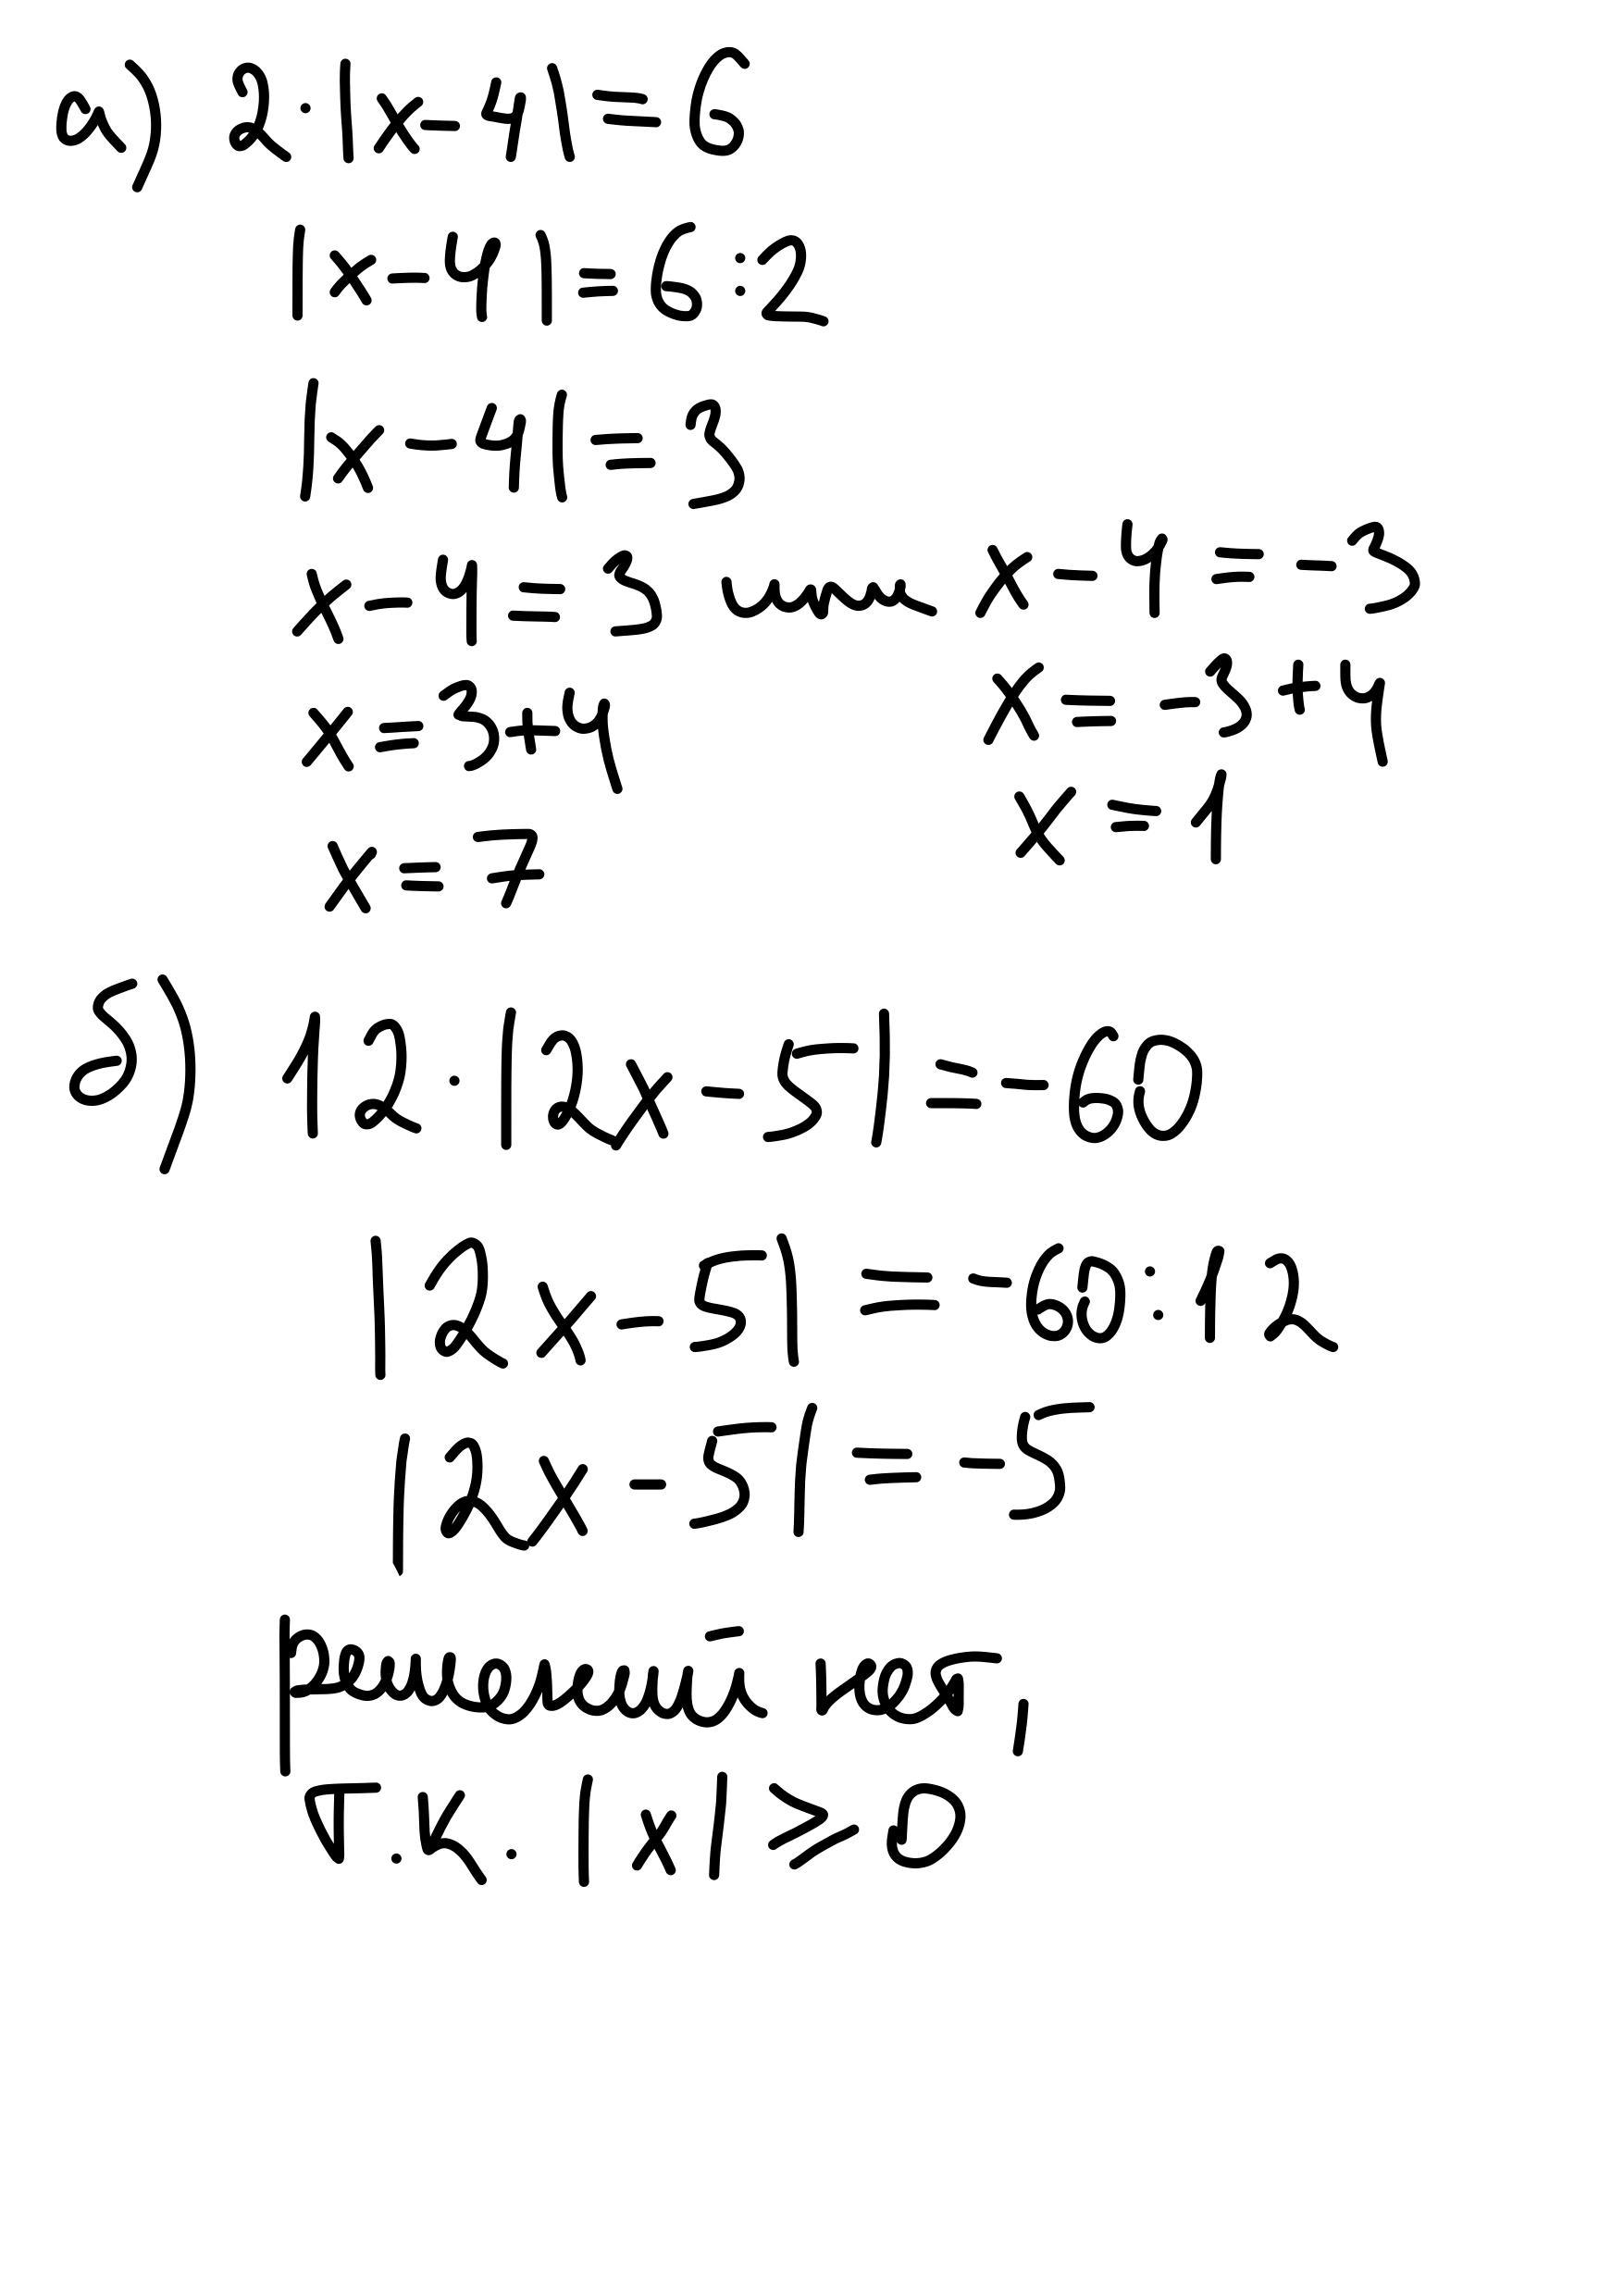 а) 2·|x-4|=6
|x-4|=6:2
|x-4|=3
x-4=3 или x-4=-3
x=3+4 x=-3+4
x=7 x=1
б) 12·|2x-5|=-60
|2x-5|=-60:12
|2x-5|=-5
решений нет,
т.к. |x|⩾0